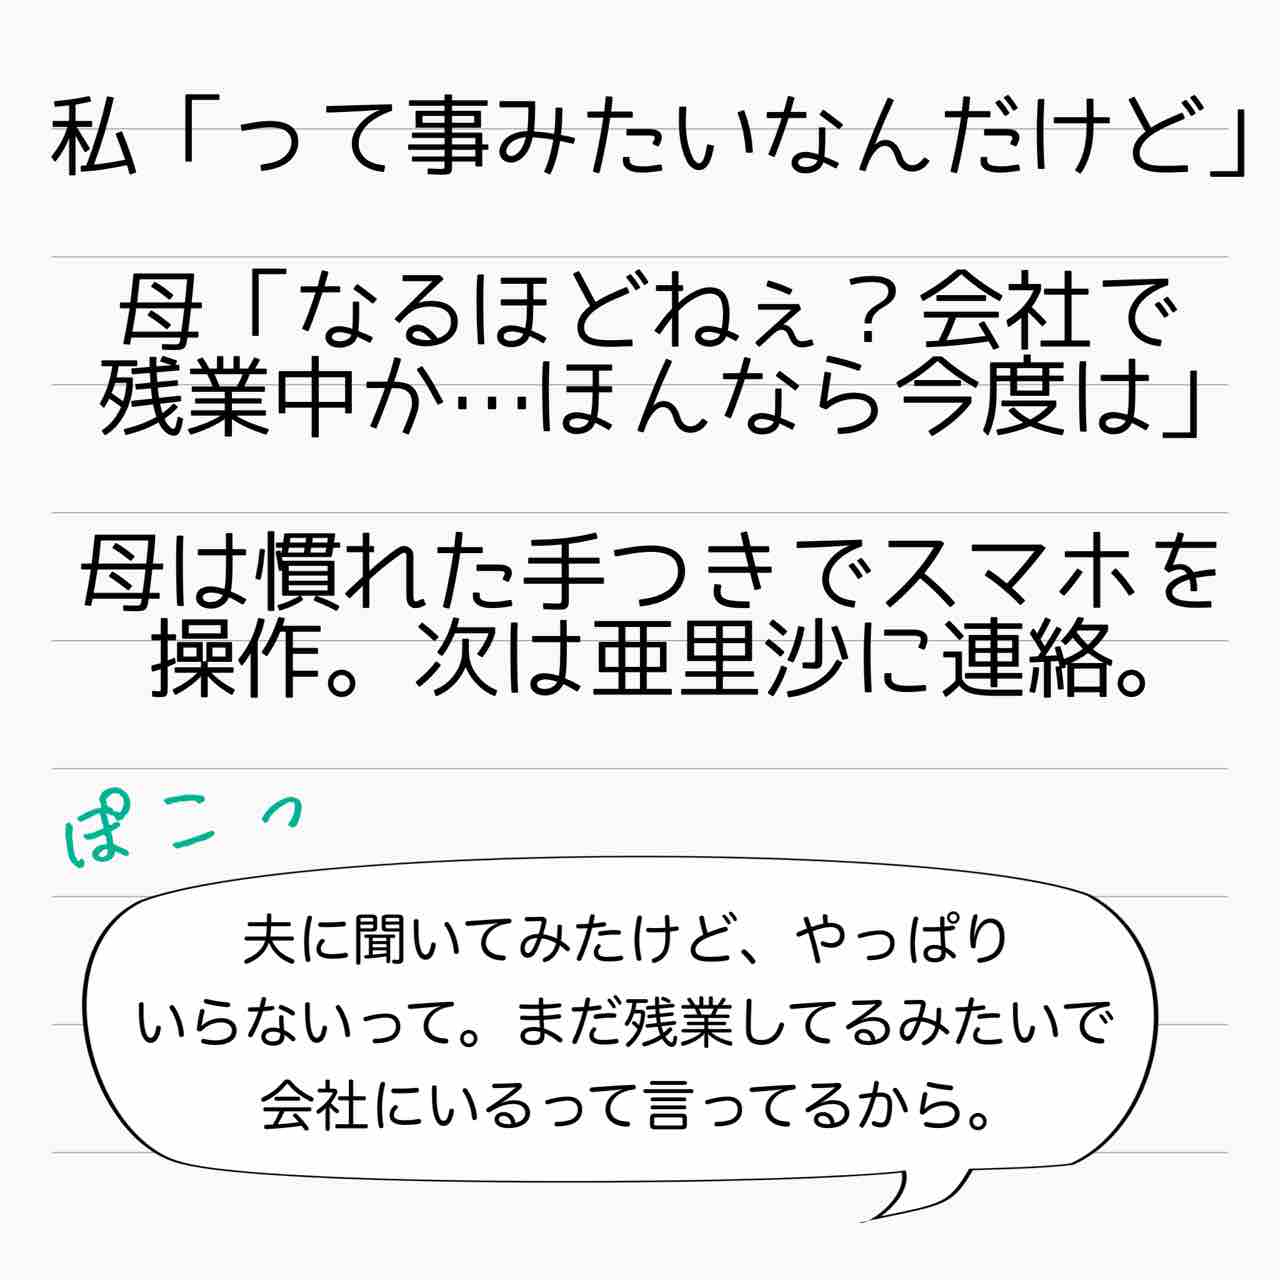 私「って事みたいなんだけど」
母「なるほどねぇ?会社で
残業中か…ほんなら今度は」
母は慣れた手つきでスマホを
操作。次は亜里沙に連絡。
ぽこっ
夫に聞いてみたけど、やっぱり
いらないって。まだ残業してるみたいで
会社にいるって言ってるから。